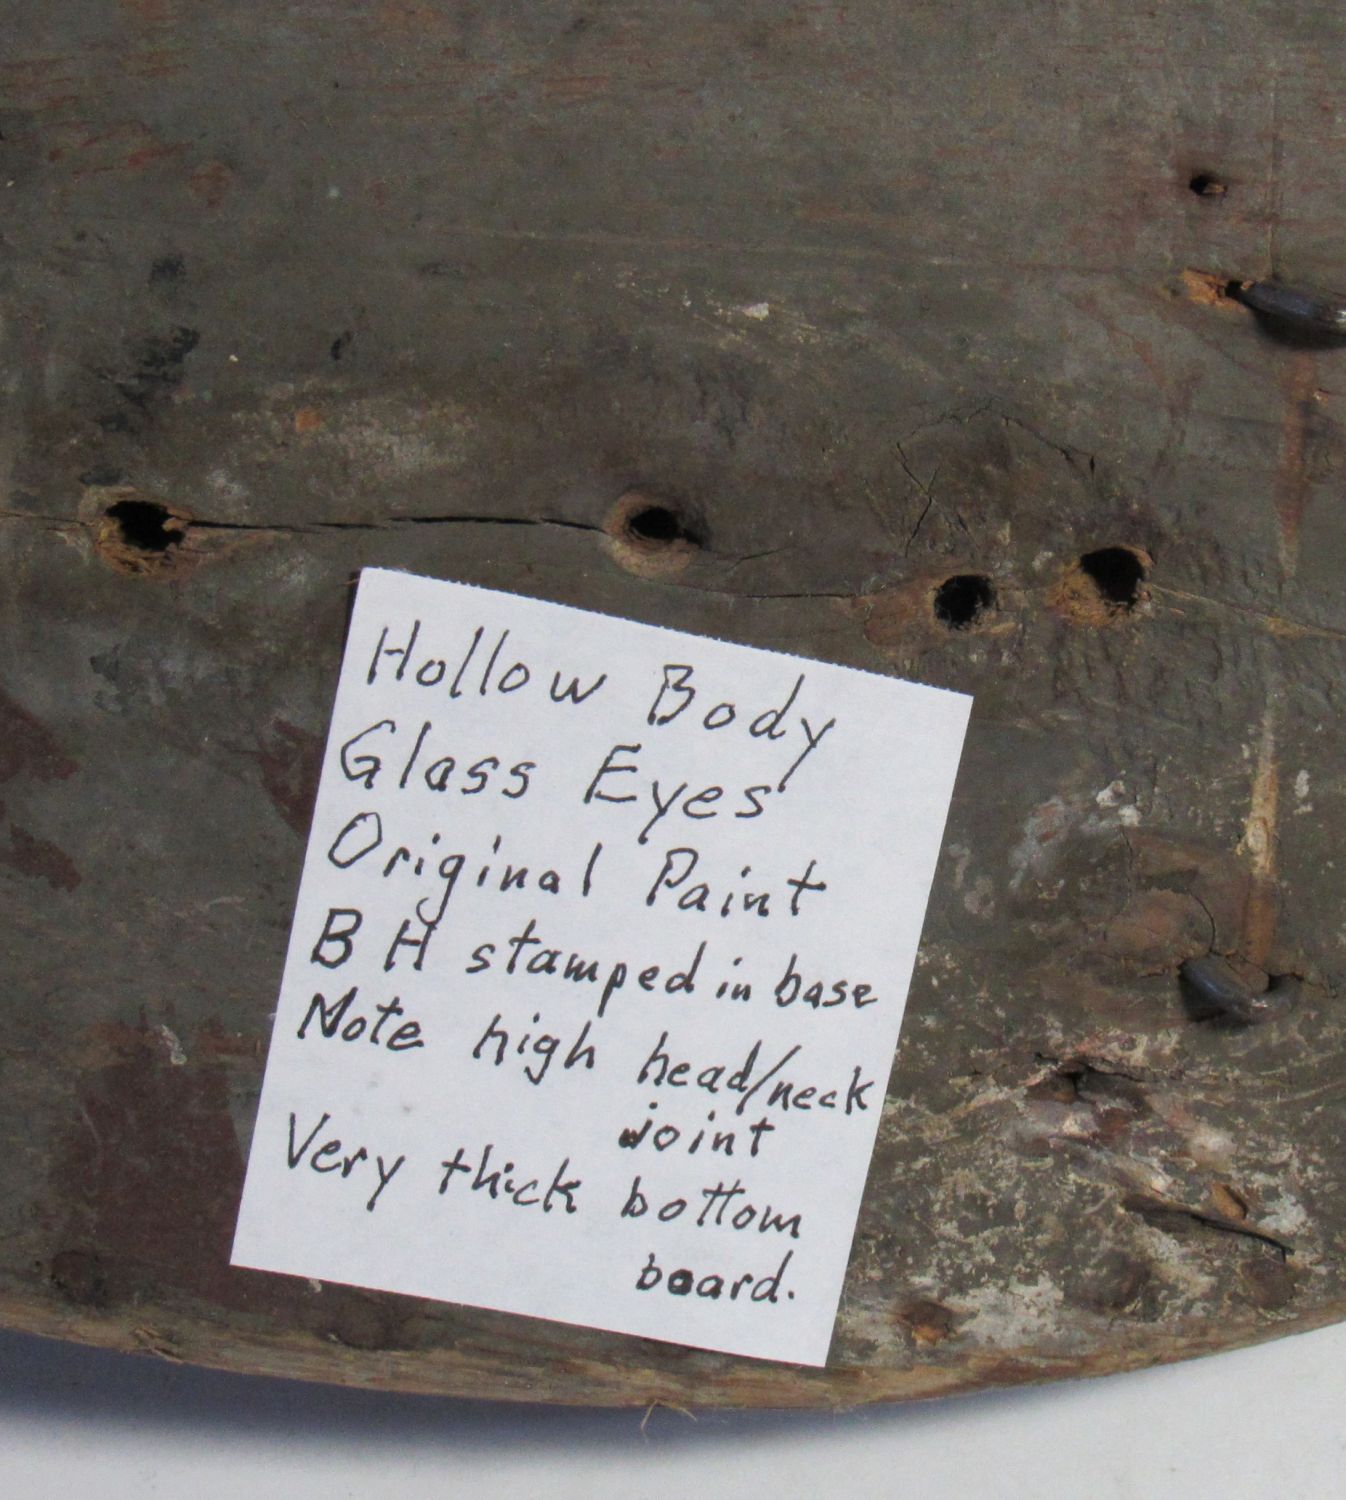 Hollow Body
Glass Eyes
Original Paint
B H stamped in base
Note high head/neck
joint
Very thick bottom
board.